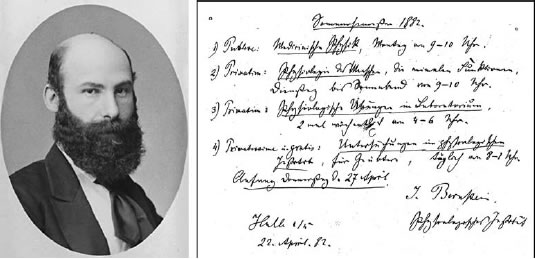 Sommersemester 1882.
1) Publice: Medicinische Physik, Montag von 9–10 Uhr.
2) Privatim: Physiologie des Menschen, die animalen Funktionen,
Dienstag bis Sonnabend von 9–10 Uhr.
3) Privatim: Physiologische Uebungen im Laboratorium,
2 mal wöchentlich von 4–6 Uhr.
4) Privatissime u. gratis: Untersuchungen im physiologischen
Institut, für Geübtere, täglich von Uhr.
Anfang Donnerstag d. 27 April
J. Bernstein.
Physiologisches Institut
Halle a/S
22. April. 82.